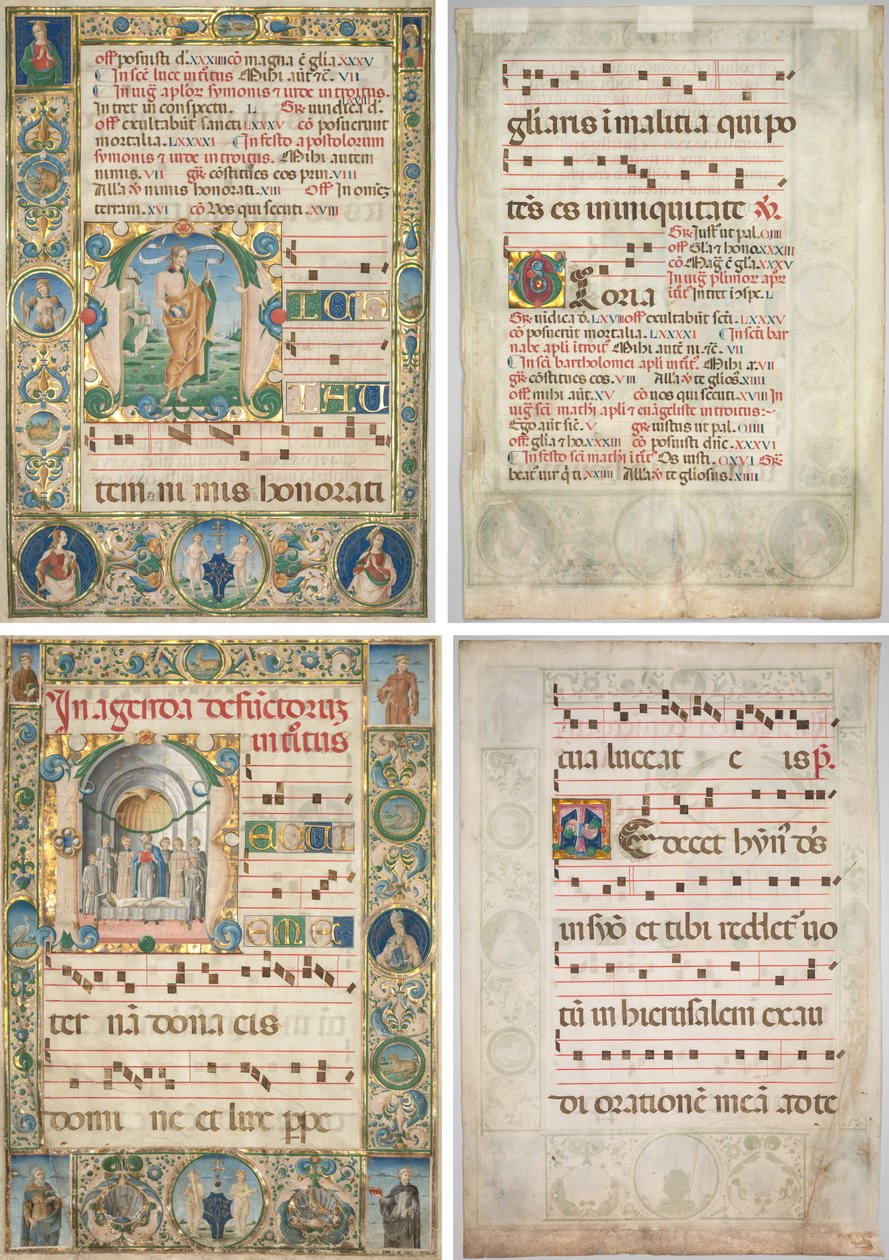 off posuisti d̄. XXXIIII cō magna ē gl̄ia. XXXV
In scī luce introitus Mihi aūt ēc. VII
In uiḡ apl̄or symonis & iude introitus.
Intret in conspectu. L Gr̄ uindica d̄. LXVIII
off exultabūt sancti LXXXV cō posuerunt
mortalia. LXXXXI In festo apostolorum
symonis & iude introitus. Mihi autem
nimis. VII gr̄ cōstitues eos prin. VIII
Alla V̄ nimis honorati. XIII Off In omēz
terram. XVI cō Vos qui secuti. XVIII
MICHI
IAU
tem ni mis honorati
gliaris ī malitia qui po
tēs es in iniquitate V̄.
Gloria
Gr̄ Iust' ut pal. CIIII
off Gl̄a & hono. XXXIII
cō Maḡ ē gl̄a. XXXV
In uiḡ pl̄imor apr̄
ītūt' In tret ī ɔspc̄. L
Gr̄ uīdica d̄. LXVIII off exultabūt scī. LXXXV
cō posuerūt mortalia. LXXXXI In scī bar
nabe apl̄i ītroit' Mihi autē ni. ēc. VII
In scī bartholomei apl̄i ītūt'. Mihi a. VII
gr̄ cōstitues eos. VIII Alla V̄ te gl̄ios. XIIII
off mihi aūt. XV cō uos qui secuti. XVIII In
uiḡ scī mathi apl̄i & euāgeliste introitus:
Ego aūt sīc. V gr̄ iustus ut pal. CIIII
off gl̄ia & ho. XXXIII cō posuisti dn̄e. XXXVI
In festo scī mathi ītūt' Os iusti. CXVI Gr̄
beat' uir q̄ ti. XXIIII Alla V̄ te gl̄iosus. XIIII
In agenda defūctoruz
introitus
REQUI
EM E
ter nā dona eis
domi ne et lux ppe
tua luceat e is p̄.
Te decet hȳn' d̄s
in syō et tibi reddet' uo
tū in hierusalem exau
di orationē meā ad te